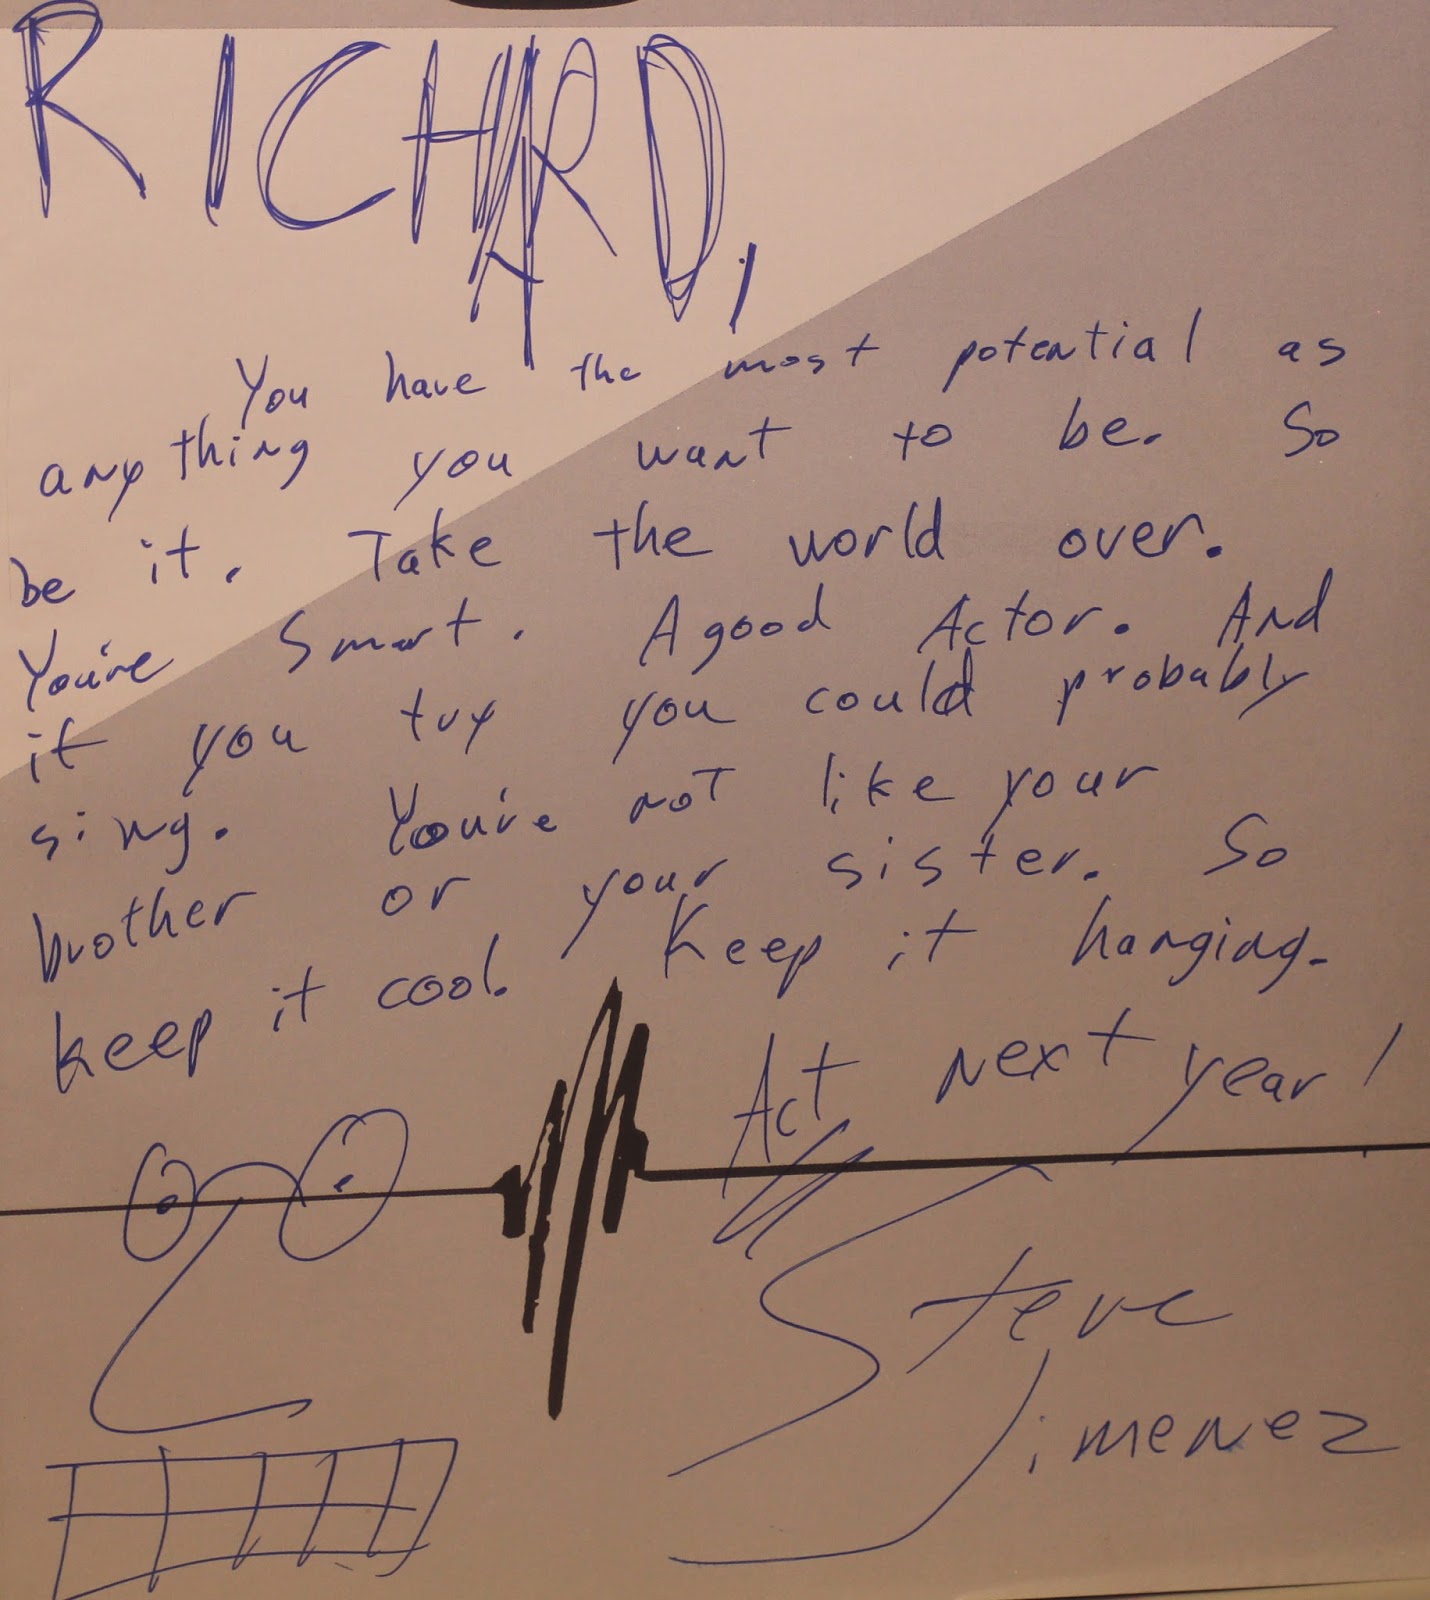 RICHARD,
You have the most potential as
anything you want to be. So
be it. Take the world over.
You're smart. A good Actor. And
if you try you could probably
sing. You're not like your
brother or your sister. So
keep it cool. Keep it hanging.
Act next year!
Steve
Jimenez